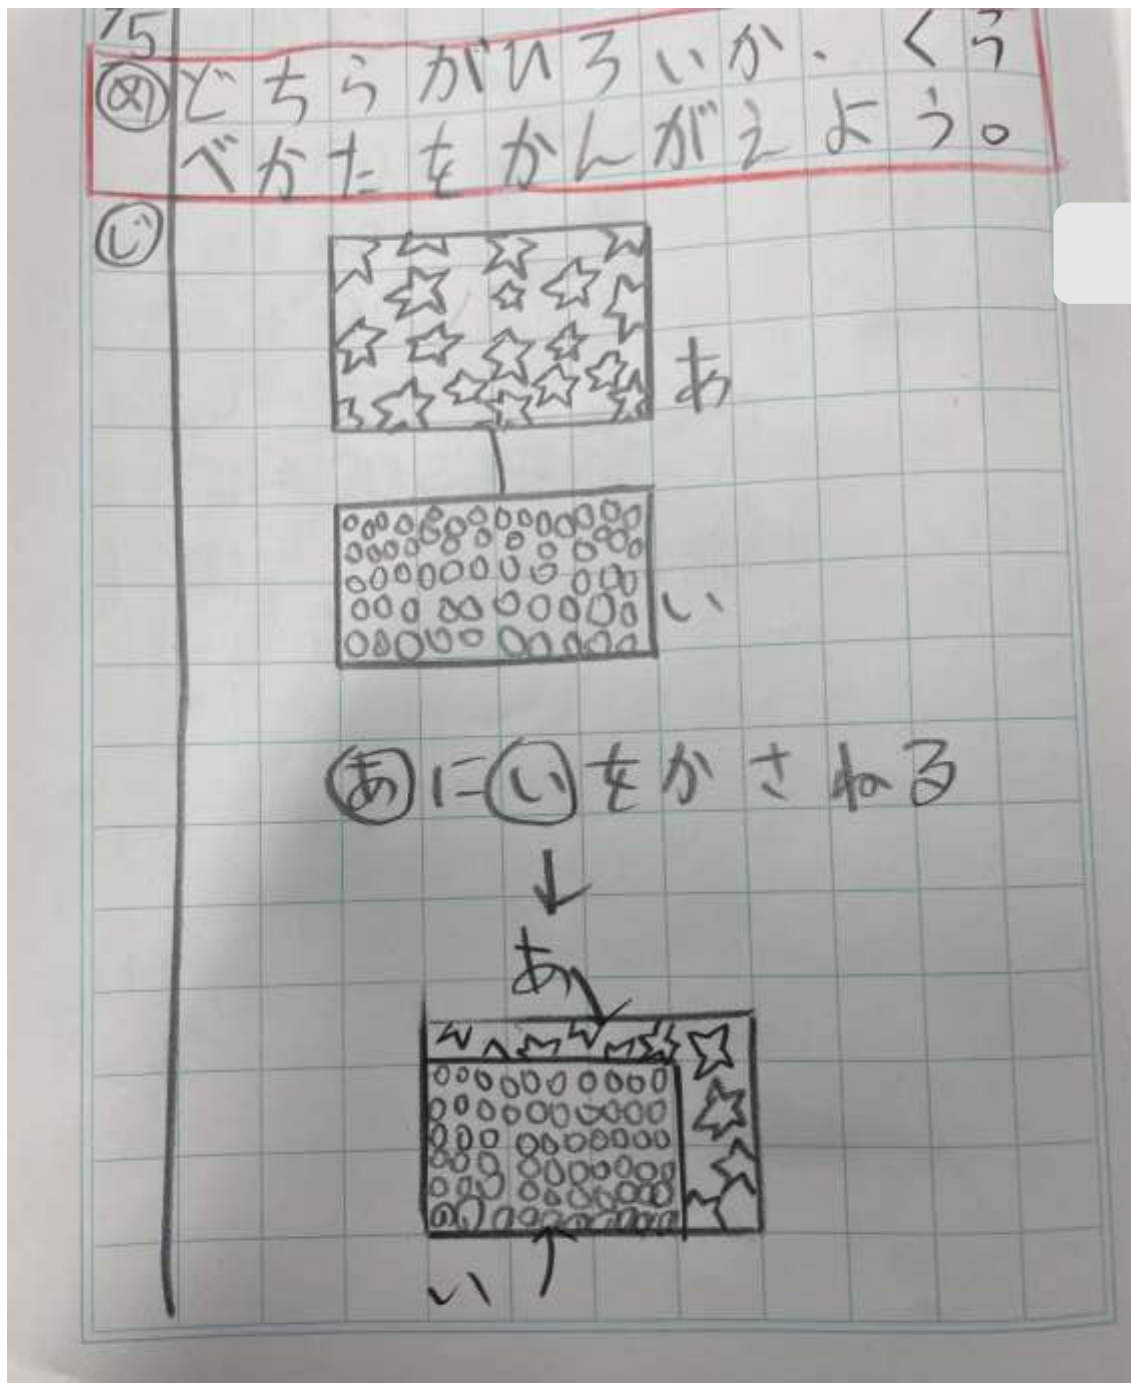 15
め どちらがひろいか、くら
べかたをかんがえよう。
じ
あ
い
あにいをかさねる
あ
い